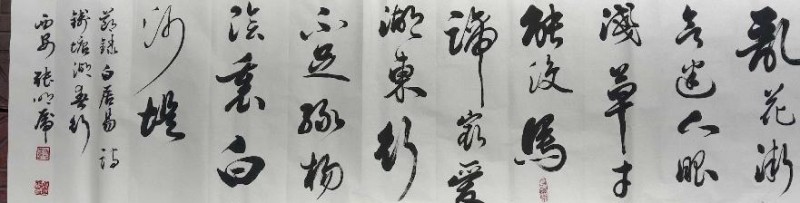 亂花漸
欲迷人眼
淺草才
能没馬
蹄最愛
湖東行
不足綠楊
陰裏白
沙堤
敬錄白居易詩
錢塘湖春行
西安張